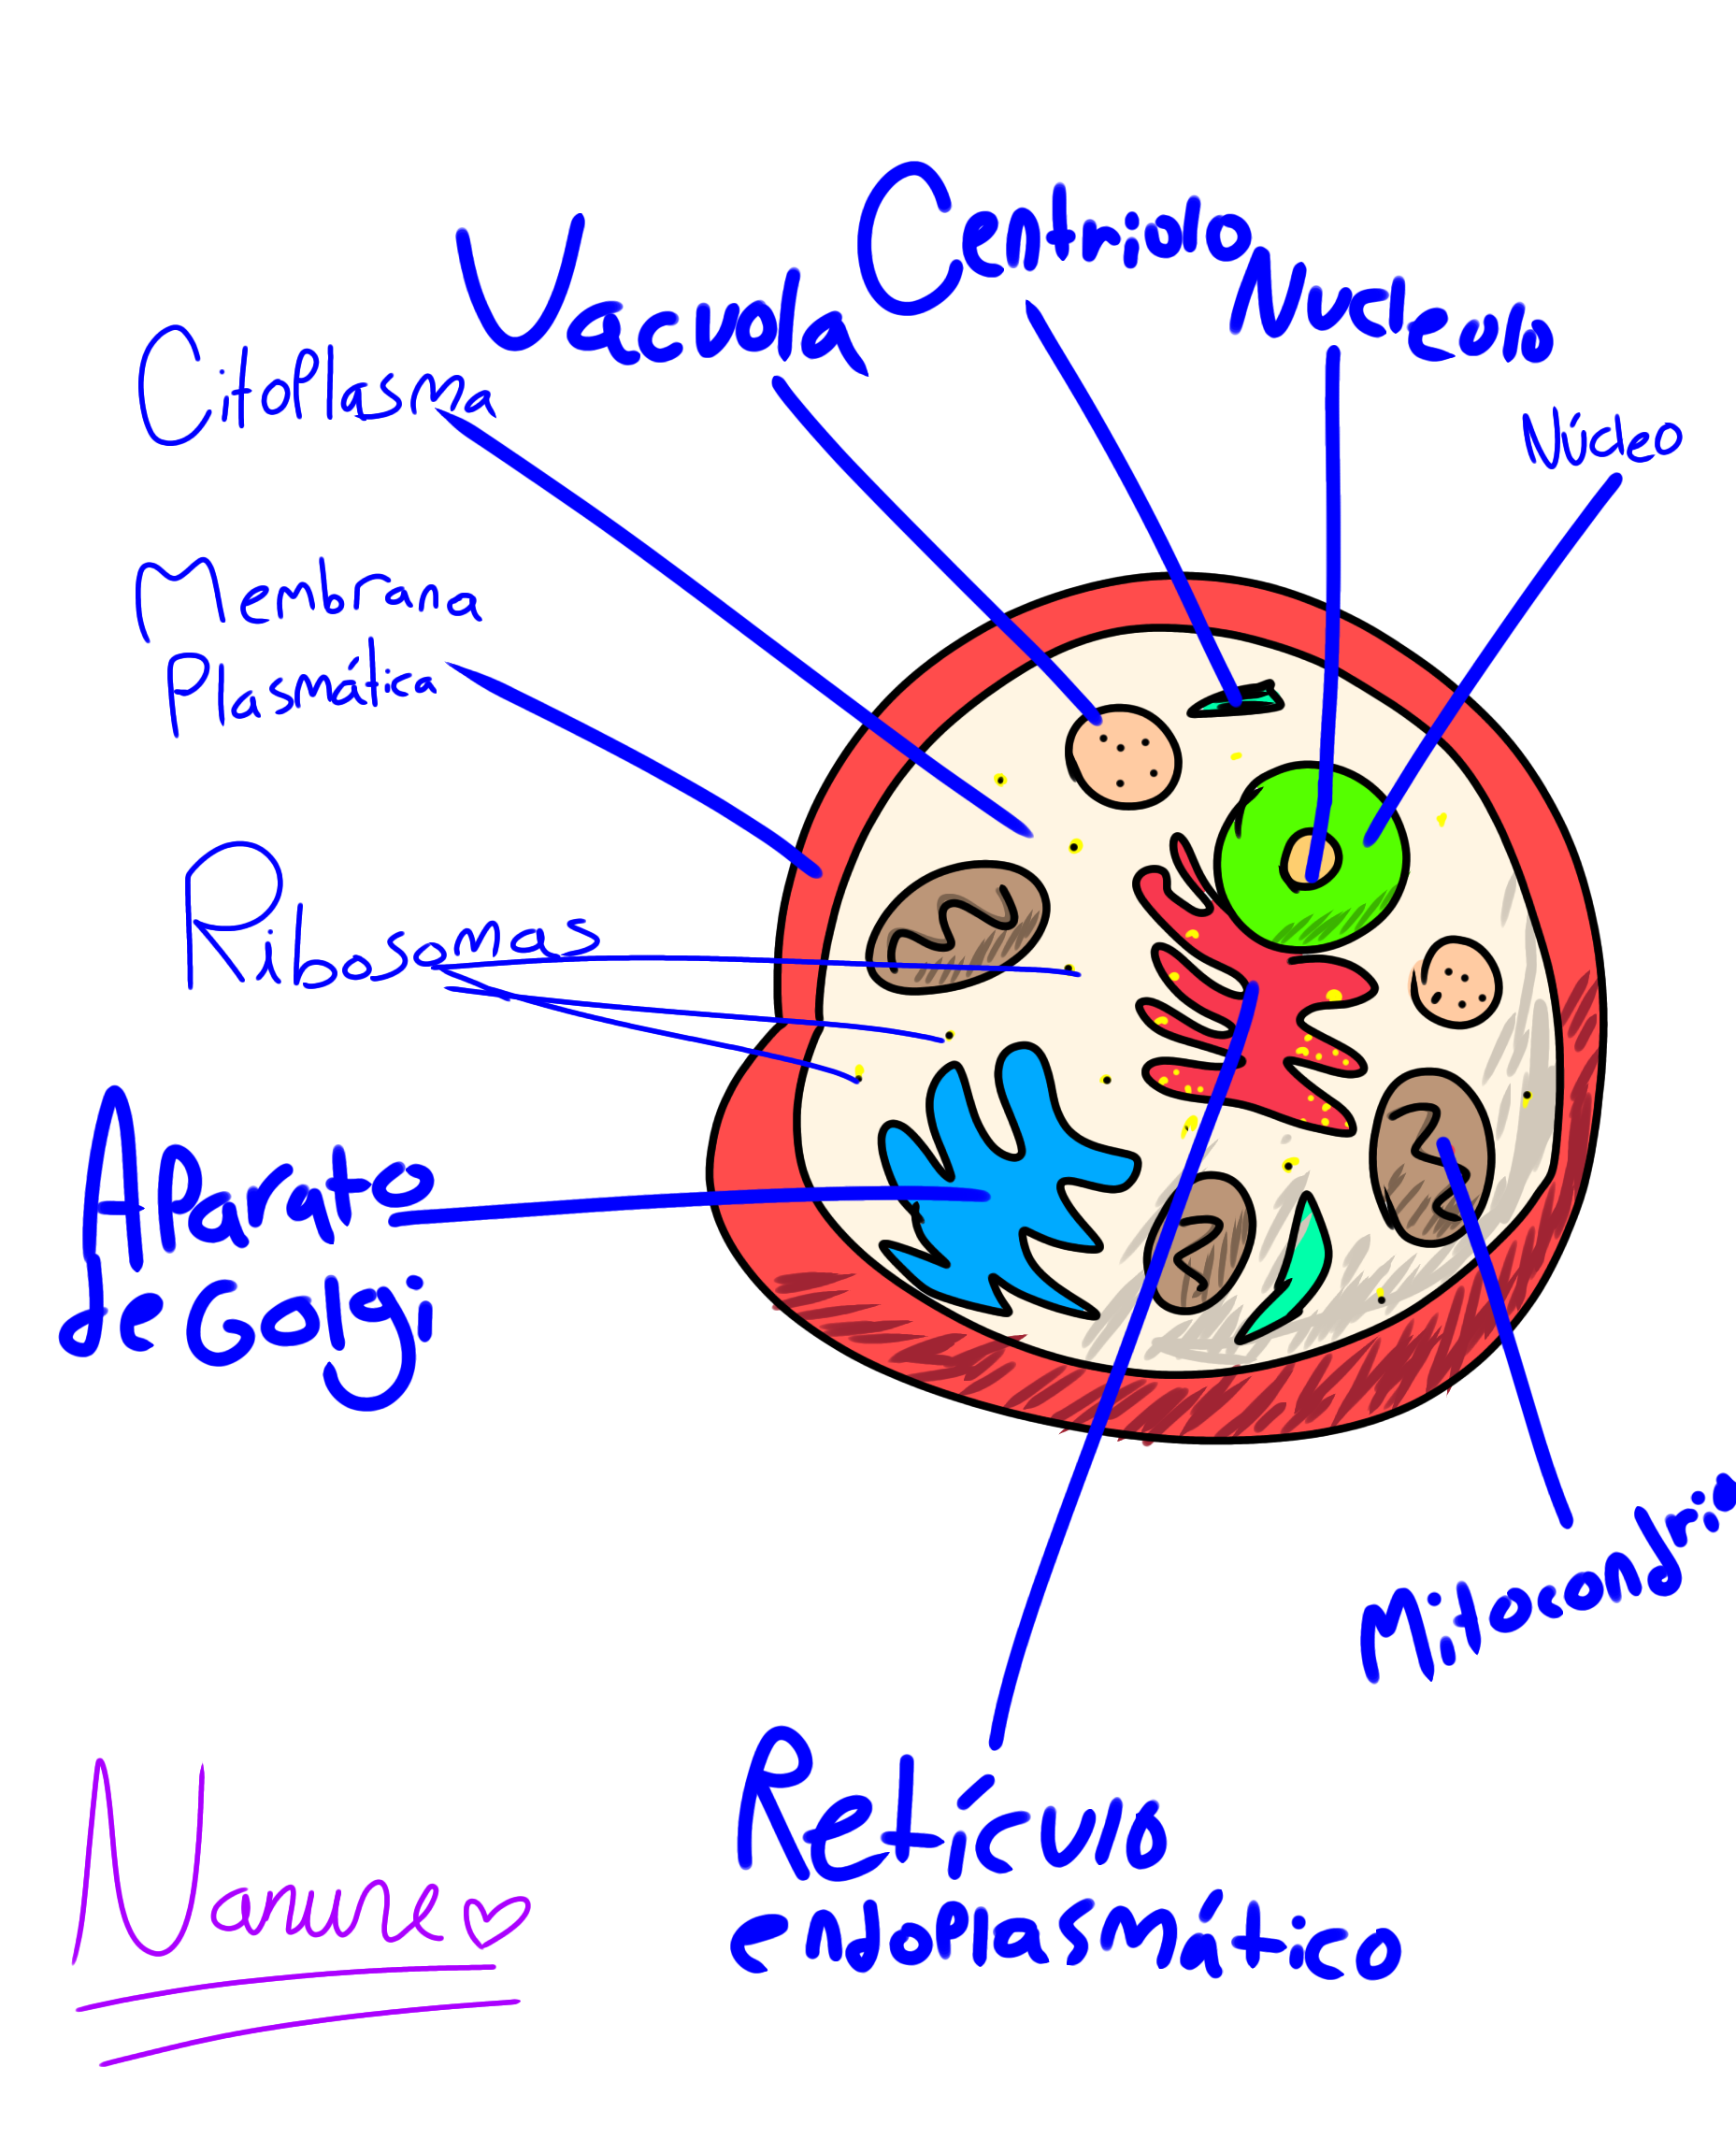 Centriolo
Vacuola
Nucleolo
Citoplasma
Núcleo
Menbrana
Plasmática
Ribosomas
Aparato
de Golgi
Mitocondria
Retículo
endoplasmático